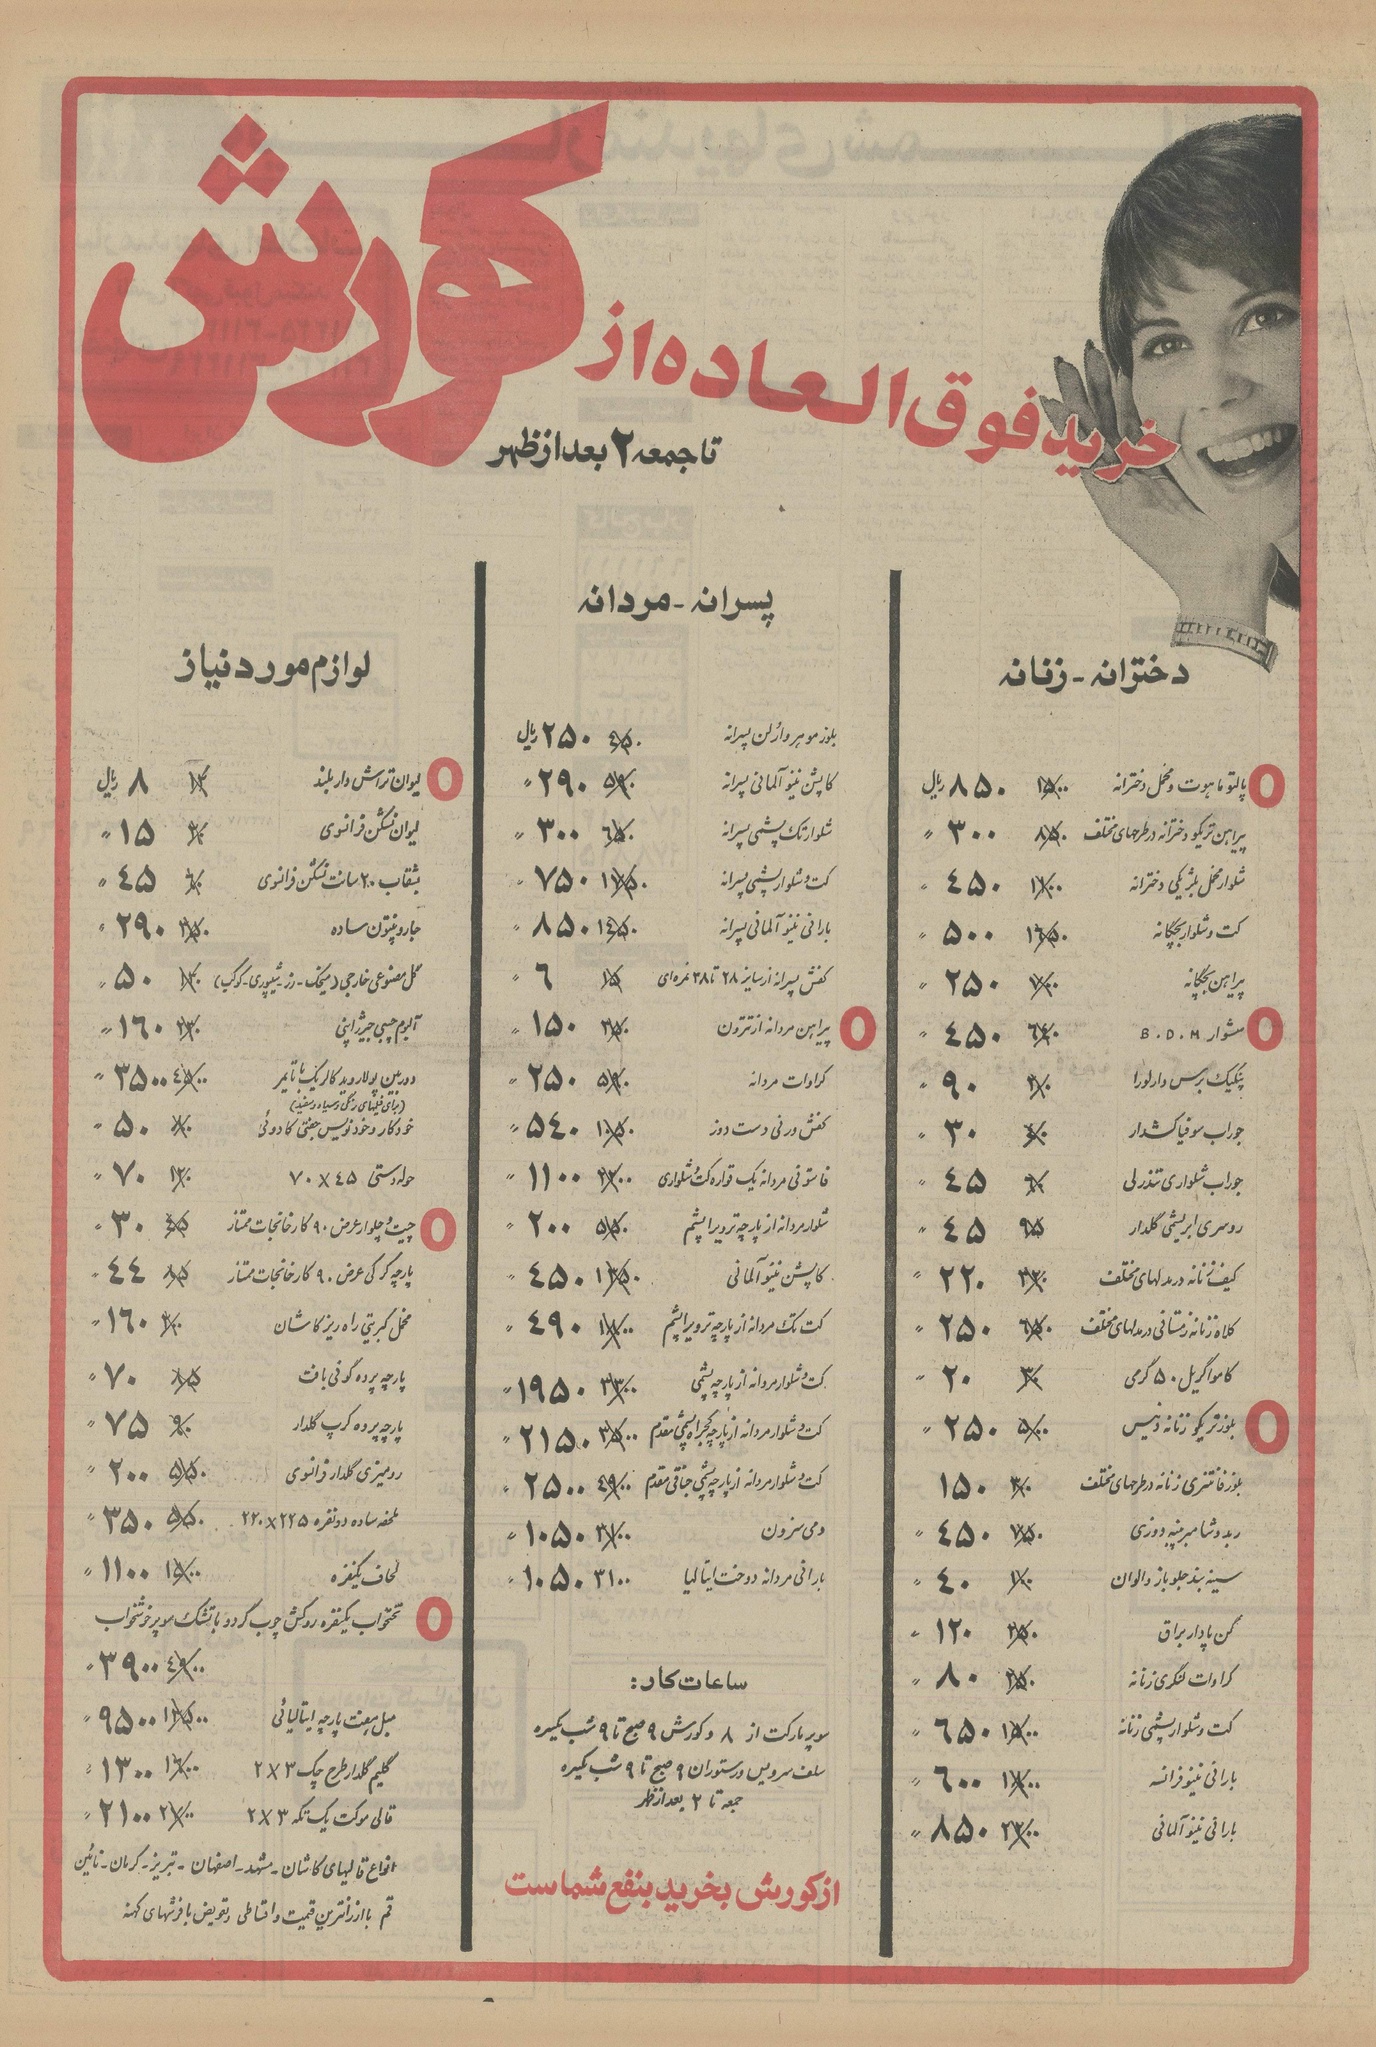 خرید فوق العاده از کورش
تا جمعه ۲ بعد از ظهر
دخترانه - زنانه
پالتو ماهوت و مخمل دخترانه ۱۵۰۰ ۸۵۰ ریال
پیراهن تریکو دخترانه در طرحهای مختلف ۸۵۰ ۳۰۰ "
شلوار مخمل بلژیکی دخترانه ۱۲۰۰ ۴۵۰ "
کت و شلوار بچگانه ۱۶۵۰ ۵۰۰ "
پیراهن بچگانه ۷۰۰ ۲۵۰ "
سشوار B.D.M ۶۴۰ ۴۵۰ "
پنکیک برس دار لورا ۹۰ "
جوراب سوفیا کشدار ۳۰ "
جوراب شلواری تندرلی ۴۵ "
روسری ابریشمی گلدار ۹۵ ۴۵ "
کیف زنانه در مدلهای مختلف ۲۲۰ "
کلاه زنانه زمستانی در مدلهای مختلف ۶۵۰ ۲۵۰ "
کاموا گریل ۵۰ گرمی ۳۰ ۲۰ "
بلوز تریکو زنانه ونیس ۵۰۰ ۲۵۰ "
بلوز فانتزی زنانه در طرحهای مختلف ۱۵۰
ربدوشامبر پنبه دوزی ۷۵۰ ۴۵۰ "
سینه بند جلو باز والوان ۴۰ "
گن پادار براق ۱۲۰ "
کراوات لنگری زنانه ۸۰ "
کت و شلوار پشمی زنانه ۶۵۰ "
بارانی نینو فرانسه ۱۸۰۰ ۶۰۰ "
بارانی نینو آلمانی ۲۳۰۰ ۸۵۰ "
پسرانه - مردانه
بلوز موهر و ارلن پسرانه ۴۵۰ ۲۵۰ ریال
کاپشن نینو آلمانی پسرانه ۵۹۰ ۲۹۰ "
شلوار تک پشمی پسرانه ۶۵۰ ۳۰۰ "
کت و شلوار پشمی پسرانه ۱۷۵۰ ۷۵۰ "
بارانی نینو آلمانی پسرانه ۱۴۵۰ ۸۵۰ "
کفش پسرانه از سایز ۲۸ تا ۳۸ نمره‌ای ۱۵ ۶ "
پیراهن مردانه از تترون ۳۵۰ ۱۵۰ "
کراوات مردانه ۵۹۰ ۲۵۰ "
کفش ورنی دست دوز ۱۰۵۰ ۵۴۰ "
فاستونی مردانه یک قواره کت و شلواری ۲۲۰۰ ۱۱۰۰ "
شلوار مردانه از پارچه ترویرا پشم ۵۵۰ ۲۰۰ "
کاپشن نینو آلمانی ۱۳۵۰ ۴۵۰ "
کت تک مردانه از پارچه ترویرا پشم ۱۸۰۰ ۴۹۰ "
کت و شلوار مردانه از پارچه پشمی ۳۳۰۰ ۱۹۵۰ "
کت و شلوار مردانه از پارچه کجراه پشمی مقدم ۳۵۰۰ ۲۱۵۰ "
کت و شلوار مردانه از پارچه پشمی جناقی مقدم ۴۹۰۰ ۲۵۰۰ "
دمی سزون ۱۰۵۰ "
بارانی مردانه دوخت ایتالیا ۳۱۰۰ ۱۰۵۰ "
ساعات کار:
سوپر مارکت از ۸ و کورش ۹ صبح تا ۹ شب یکسره
سلف سرویس و رستوران ۹ صبح تا ۹ شب یکسره
جمعه تا ۲ بعد از ظهر
از کورش بخرید بنفع شماست
لوازم مورد نیاز
لیوان تراش دار بلند ۸ ریال
لیوان نشکن فرانسوی ۱۵ "
بشقاب ۲۰ سانت نشکن فرانسوی ۴۵ "
جارو نپتون ساده ۳۵۰ ۲۹۰ "
گل مصنوعی خارجی (میخک - رز - شیپوری - کوکب) ۵۰ "
آلبوم چسبی جیر ژاپنی ۱۶۰ "
دوربین پولاروید کالرپک با تایمر ۴۸۰۰ ۳۵۰۰ "
(برای فیلمهای رنگی و سیاه و سفید)
خودکار و خودنویس جفتی کادوئی ۵۰ "
حوله دستی ۴۵ × ۷۰ ۱۲۰ ۷۰ "
چیت و چلوار عرض ۹۰ کارخانجات ممتاز ۴۵ ۳۰ "
پارچه کرکی عرض ۹۰ کارخانجات ممتاز ۸۵ ۴۴ "
مخمل کبریتی راه ریز کاشان ۱۶۰ "
پارچه پرده گونی بافت ۸۵ ۷۰ "
پارچه پرده کرپ گلدار ۹۰ ۷۵ "
رومیزی گلدار فرانسوی ۵۵۰ ۲۰۰ "
ملحفه ساده دو نفره ۲۲۵×۲۲۰ ۵۵۰ ۳۵۰ "
لحاف یکنفره ۱۵۰۰ ۱۱۰۰ "
تختخواب یکنفره روکش چوب گردو با تشک سوپر خوشخواب
۴۹۰۰ ۳۹۰۰ "
مبل پعنت پارچه ایتالیائی ۱۲۵۰۰ ۹۵۰۰ "
گلیم گلدار طرح چک ۳×۲ ۱۶۰۰ ۱۳۰۰ "
قالی موکت یک تکه ۳×۲ ۲۷۰۰ ۲۱۰۰ "
انواع قالیهای کاشان - مشهد - اصفهان - تبریز - کرمان - نائین
قم با ارزانترین قیمت و اقساطی و تعویض با فرشهای کهنه